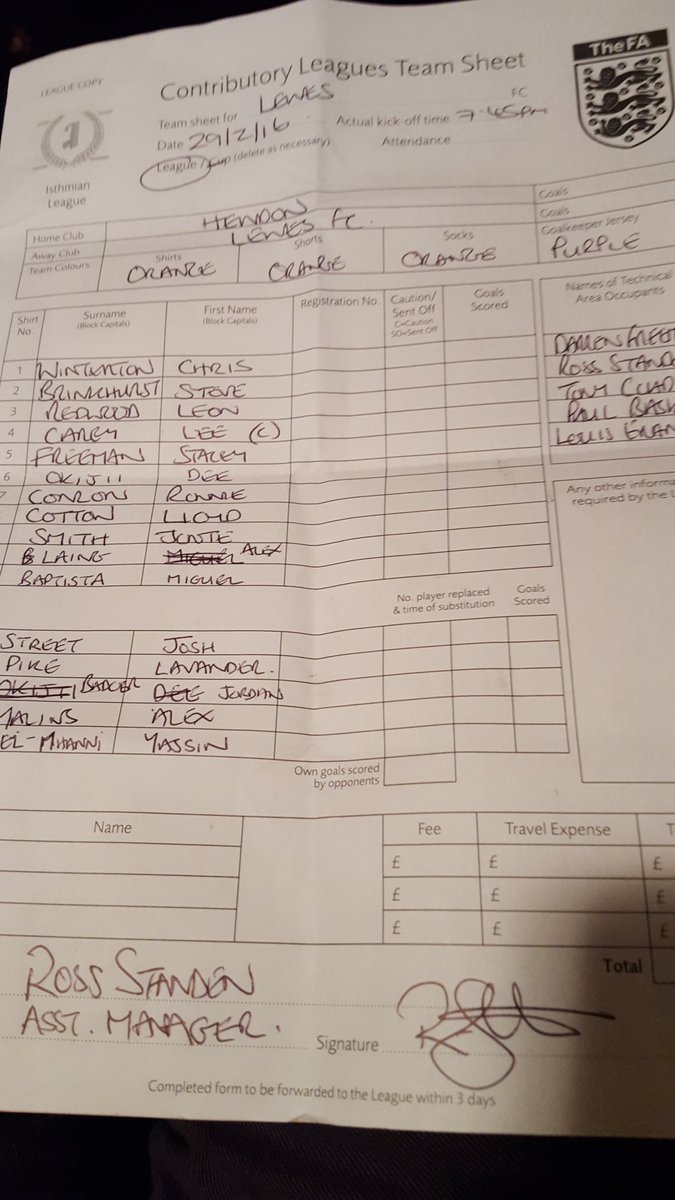 LEAGUE COPY
Contributory Leagues Team Sheet
TheFA
Team sheet for LEWES FC
Date 29/2/16 Actual kick-off time 7.45pm
League / Cup (delete as necessary) Attendance
Isthmian
League
Home Club HENDON Goals
Away Club LEWES FC. Goals
Team Colours Shirts ORANGE Shorts ORANGE Socks ORANGE Goalkeeper Jersey PURPLE
Shirt No. Surname (Block Capitals) First Name (Block Capitals) Registration No. Caution/ Sent Off C=Caution SO=Sent Off Goals Scored
Names of Technical
Area Occupants
DARREN FREE
ROSS STAND
TONY
PAUL BAS
LEWIS
1 WINTERTON CHRIS
2 BRINKHURST STEVE
3 REDWOOD LEON
4 CAREY LEE (C)
5 FREEMAN STACEY
6 OKIJII DEE
7 CONLON RONNIE
COTTON LLOYD
SMITH JONTE
LAING ALEX
BAPTISTA MIGUEL
Any other informa
required by the L
No. player replaced
& time of substitution
Goals
Scored
STREET JOSH
PIKE LAVANDER.
BADGER JORDAN
MALINS ALEX
EL-MHANNI YASSIN
Own goals scored
by opponents
Name Fee Travel Expense T
£ £ £
£ £ £
£ £ £
Total
ROSS STANDEN
ASST. MANAGER.
Signature
Completed form to be forwarded to the League within 3 days